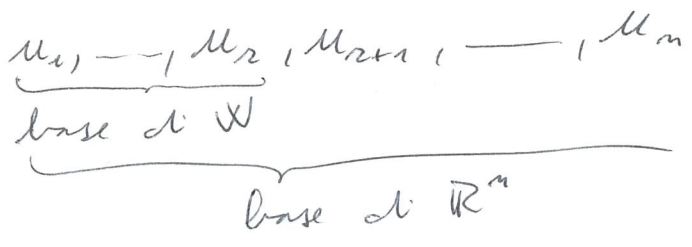 u₁, —, u₂, u₂₊₁, —, uₙ
base di W
base di ℝⁿ